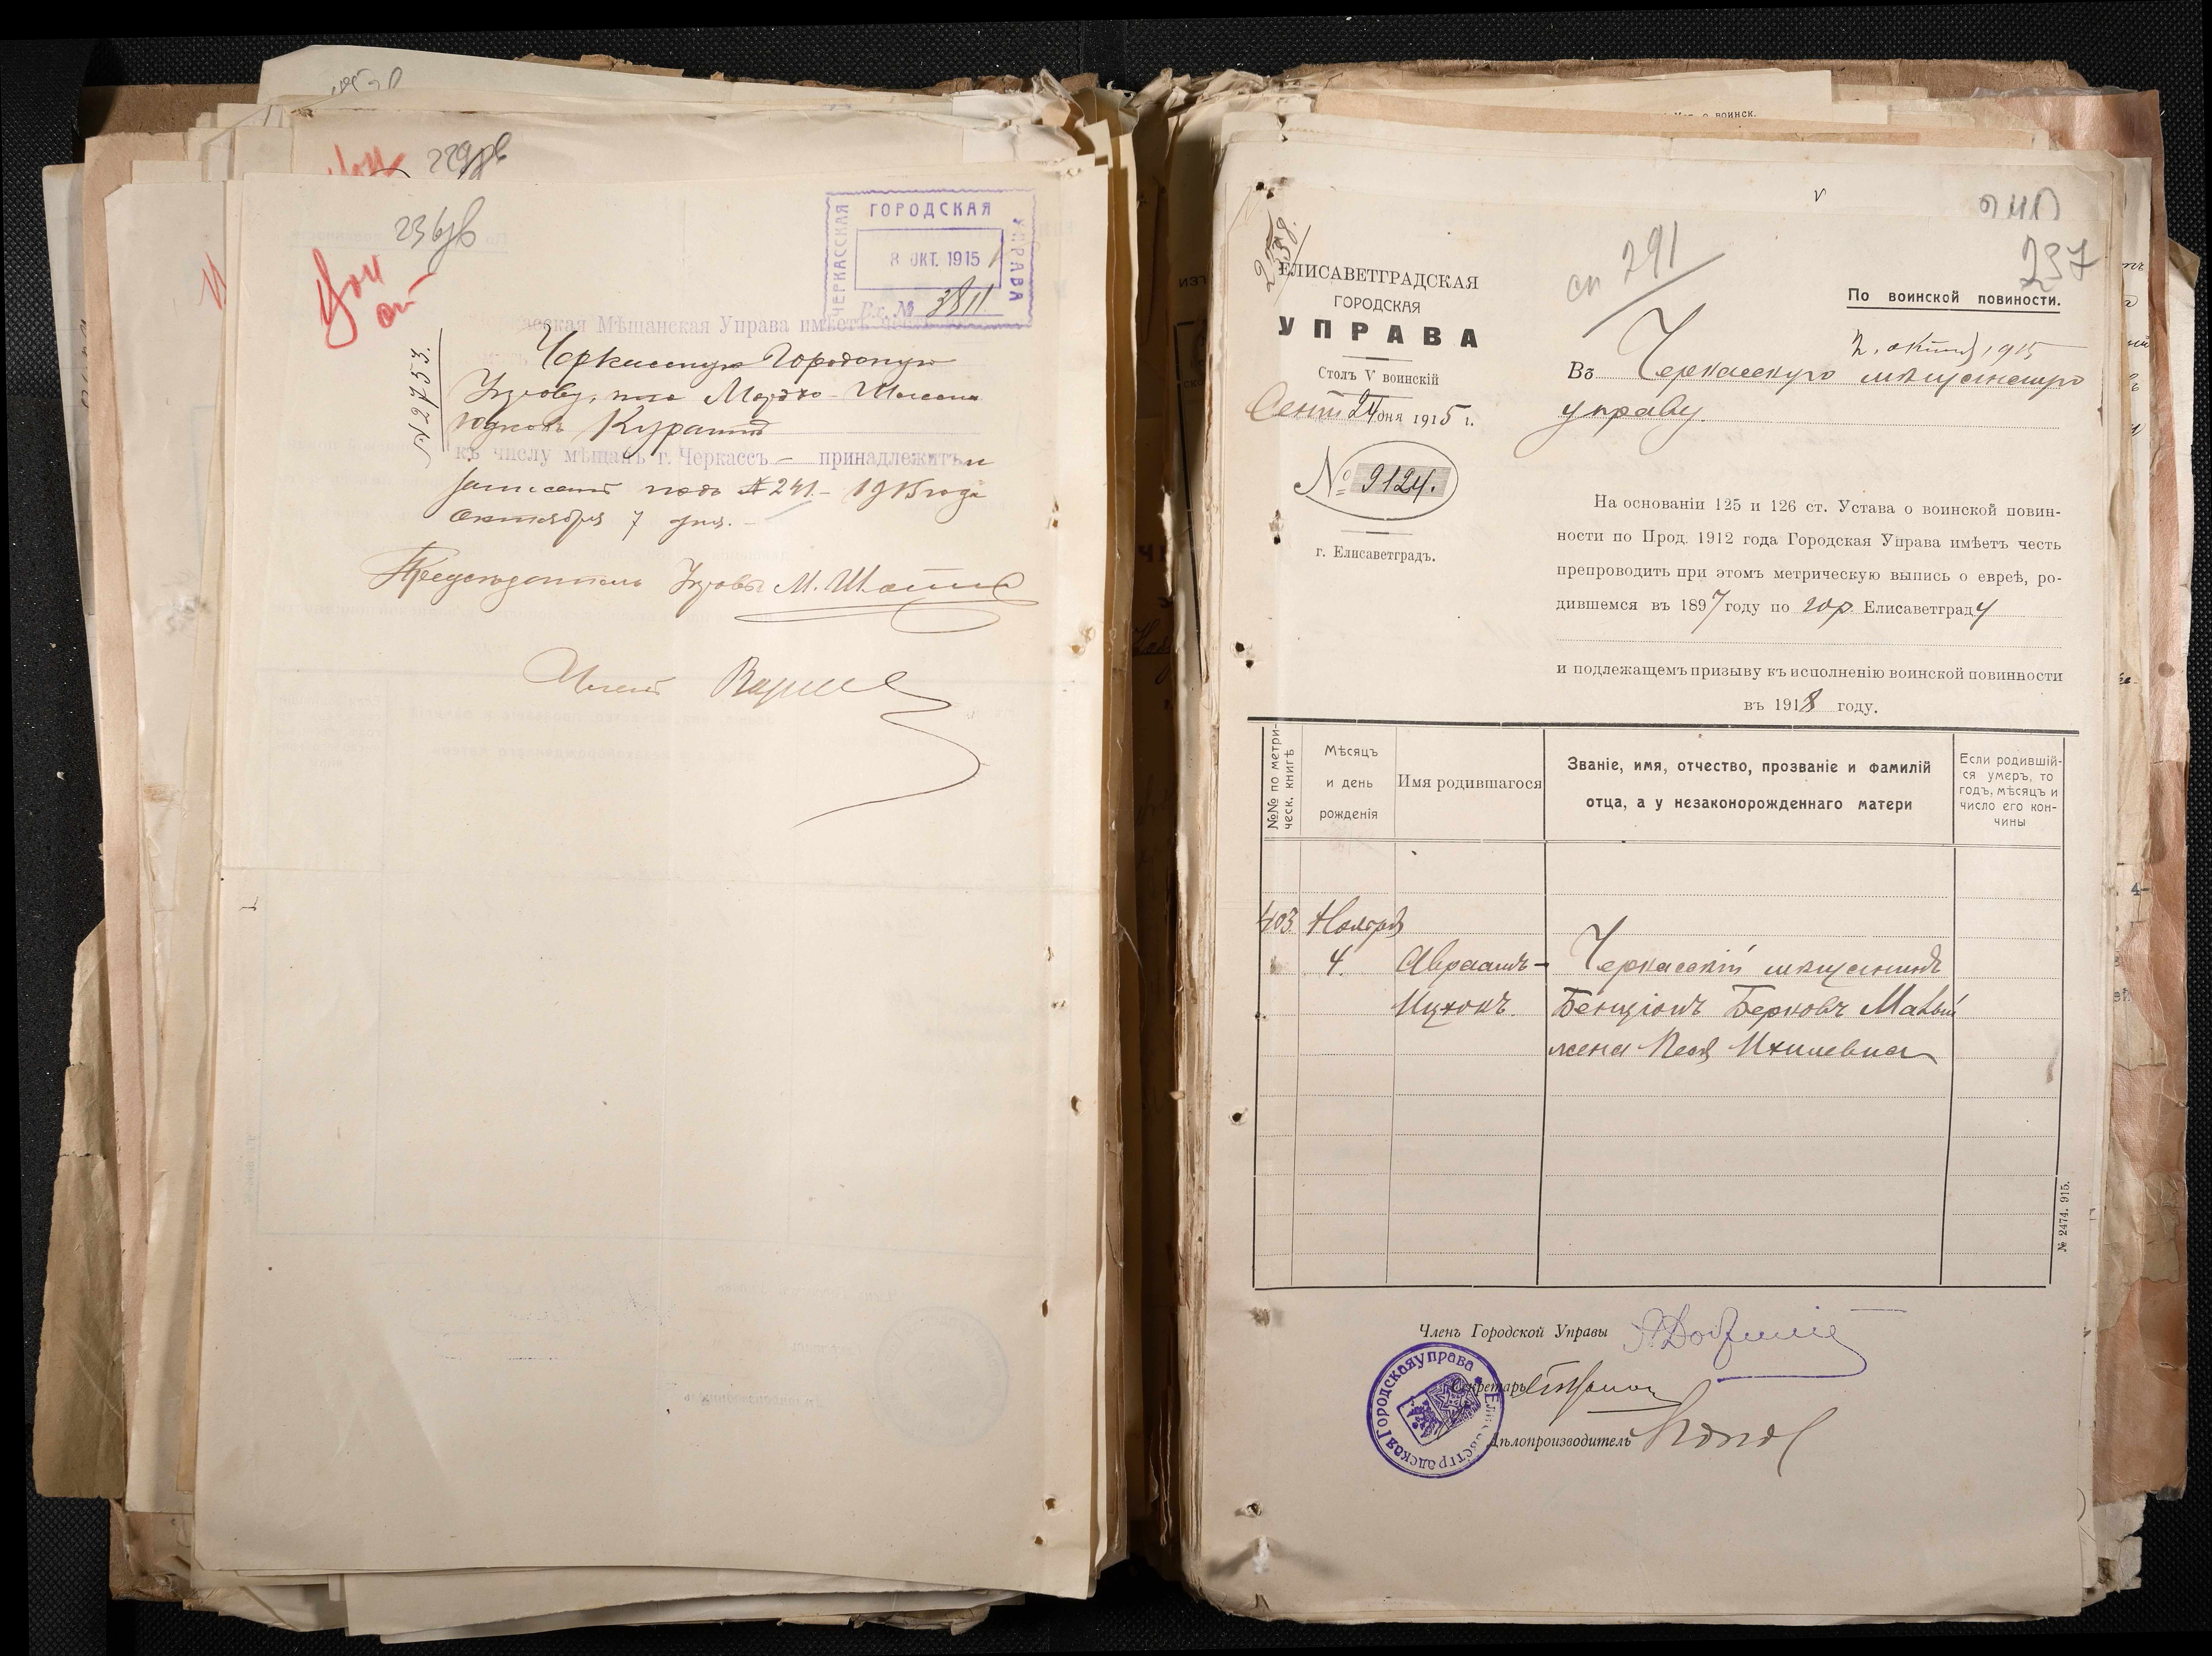 229 об
236 об
ЧЕРКАССКАЯ ГОРОДСКАЯ УПРАВА
8 ОКТ. 1915
Вх. № 3811
Мѣщанская Управа имѣетъ
Черкасскую Городскую
Управу, что
къ числу мѣщанъ г. Черкассъ – принадлежитъ и
записанъ подъ № 241. – 1915 года
Октября 7 дня.
№ 2753.
Предсѣдатель Управы
Членъ
о воинск.
237
291
ЕЛИСАВЕТГРАДСКАЯ
ГОРОДСКАЯ
УПРАВА
Столъ V воинскій
Сент 24 дня 1915 г.
№ 9124.
г. Елисаветградъ.
По воинской повиности.
2. октяб 1915
Въ Черкасскую мѣщанскую
управу.
На основаніи 125 и 126 ст. Устава о воинской повин-
ности по Прод. 1912 года Городская Управа имѣетъ честь
препроводить при этомъ метрическую выпись о евреѣ, ро-
дившемся въ 1897 году по гор. Елисаветграду
и подлежащемъ призыву къ исполненію воинской повинности
въ 1918 году.
№№ по метри-
ческ. книгѣ
Мѣсяцъ
и день
рожденія
Имя родившагося
Званіе, имя, отчество, прозваніе и фамилій
отца, а у незаконорожденнаго матери
Если родившій-
ся умеръ, то
годъ, мѣсяцъ и
число его кон-
чины
403. Ноября
4. Авраамъ- Черкасскій мѣщанинъ
Ицхокъ. Бенціонъ Берковъ
жена
№ 2474. 915.
Членъ Городской Управы
Секретарь
Дѣлопроизводитель
Елисаветградская Городская управа